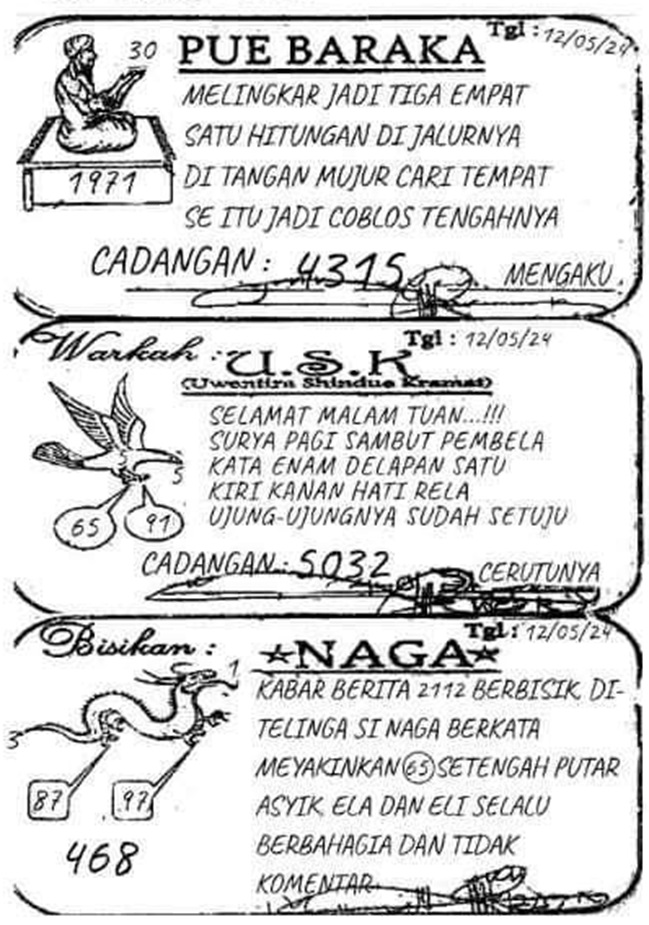 30
PUE BARAKA
Tgl : 12/05/24
MELINGKAR JADI TIGA EMPAT
SATU HITUNGAN DI JALURNYA
1971
DI TANGAN MUJUR CARI TEMPAT
SE ITU JADI COBLOS TENGAHNYA
CADANGAN : 4315
MENGAKU.
Warkah :
U.S.K
Tgl : 12/05/24
(Uwentira Shindue Kramat)
SELAMAT MALAM TUAN...!!!
SURYA PAGI SAMBUT PEMBELA
KATA ENAM DELAPAN SATU
5
KIRI KANAN HATI RELA
UJUNG-UJUNGNYA SUDAH SETUJU
65
91
CADANGAN : 5032
CERUTUNYA
Bisikan :
NAGA
Tgl : 12/05/24
1
KABAR BERITA 2112 BERBISIK DI-
TELINGA SI NAGA BERKATA
3
MEYAKINKAN 65 SETENGAH PUTAR
87
97
ASYIK ELA DAN ELI SELALU
BERBAHAGIA DAN TIDAK
468
KOMENTAR